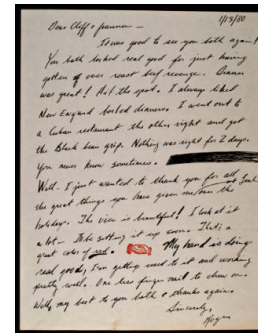 1/13/80
Dear Cliff & Joanne —
It was good to see you both again!
You both looked real good for just having
gotten of over roast beef revenge. Dinner
was great! Hit the spot. I always liked
New England boiled dinners. I went out to
a Cuban restaurant the other night and got
the black bean grip. Nothing was right for 2 days.
You never know sometimes.
Well. I just wanted to thank you for all
the great things you have given me/over the
holidays. The vice is beautiful! I look at it
a lot — I'll be setting it up soon.
great color of red. My hand is doing
real good, I'm getting used to it and working
pretty well. One less finger nail to chew on.
Well, my best to you both & thanks again.
Sincerely,
Roger